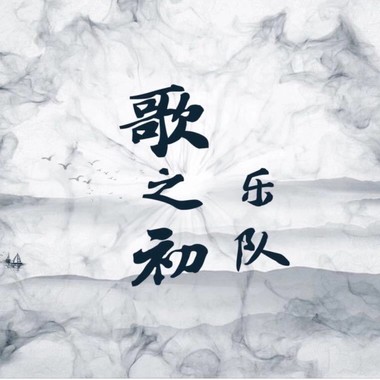 歌之初
乐队